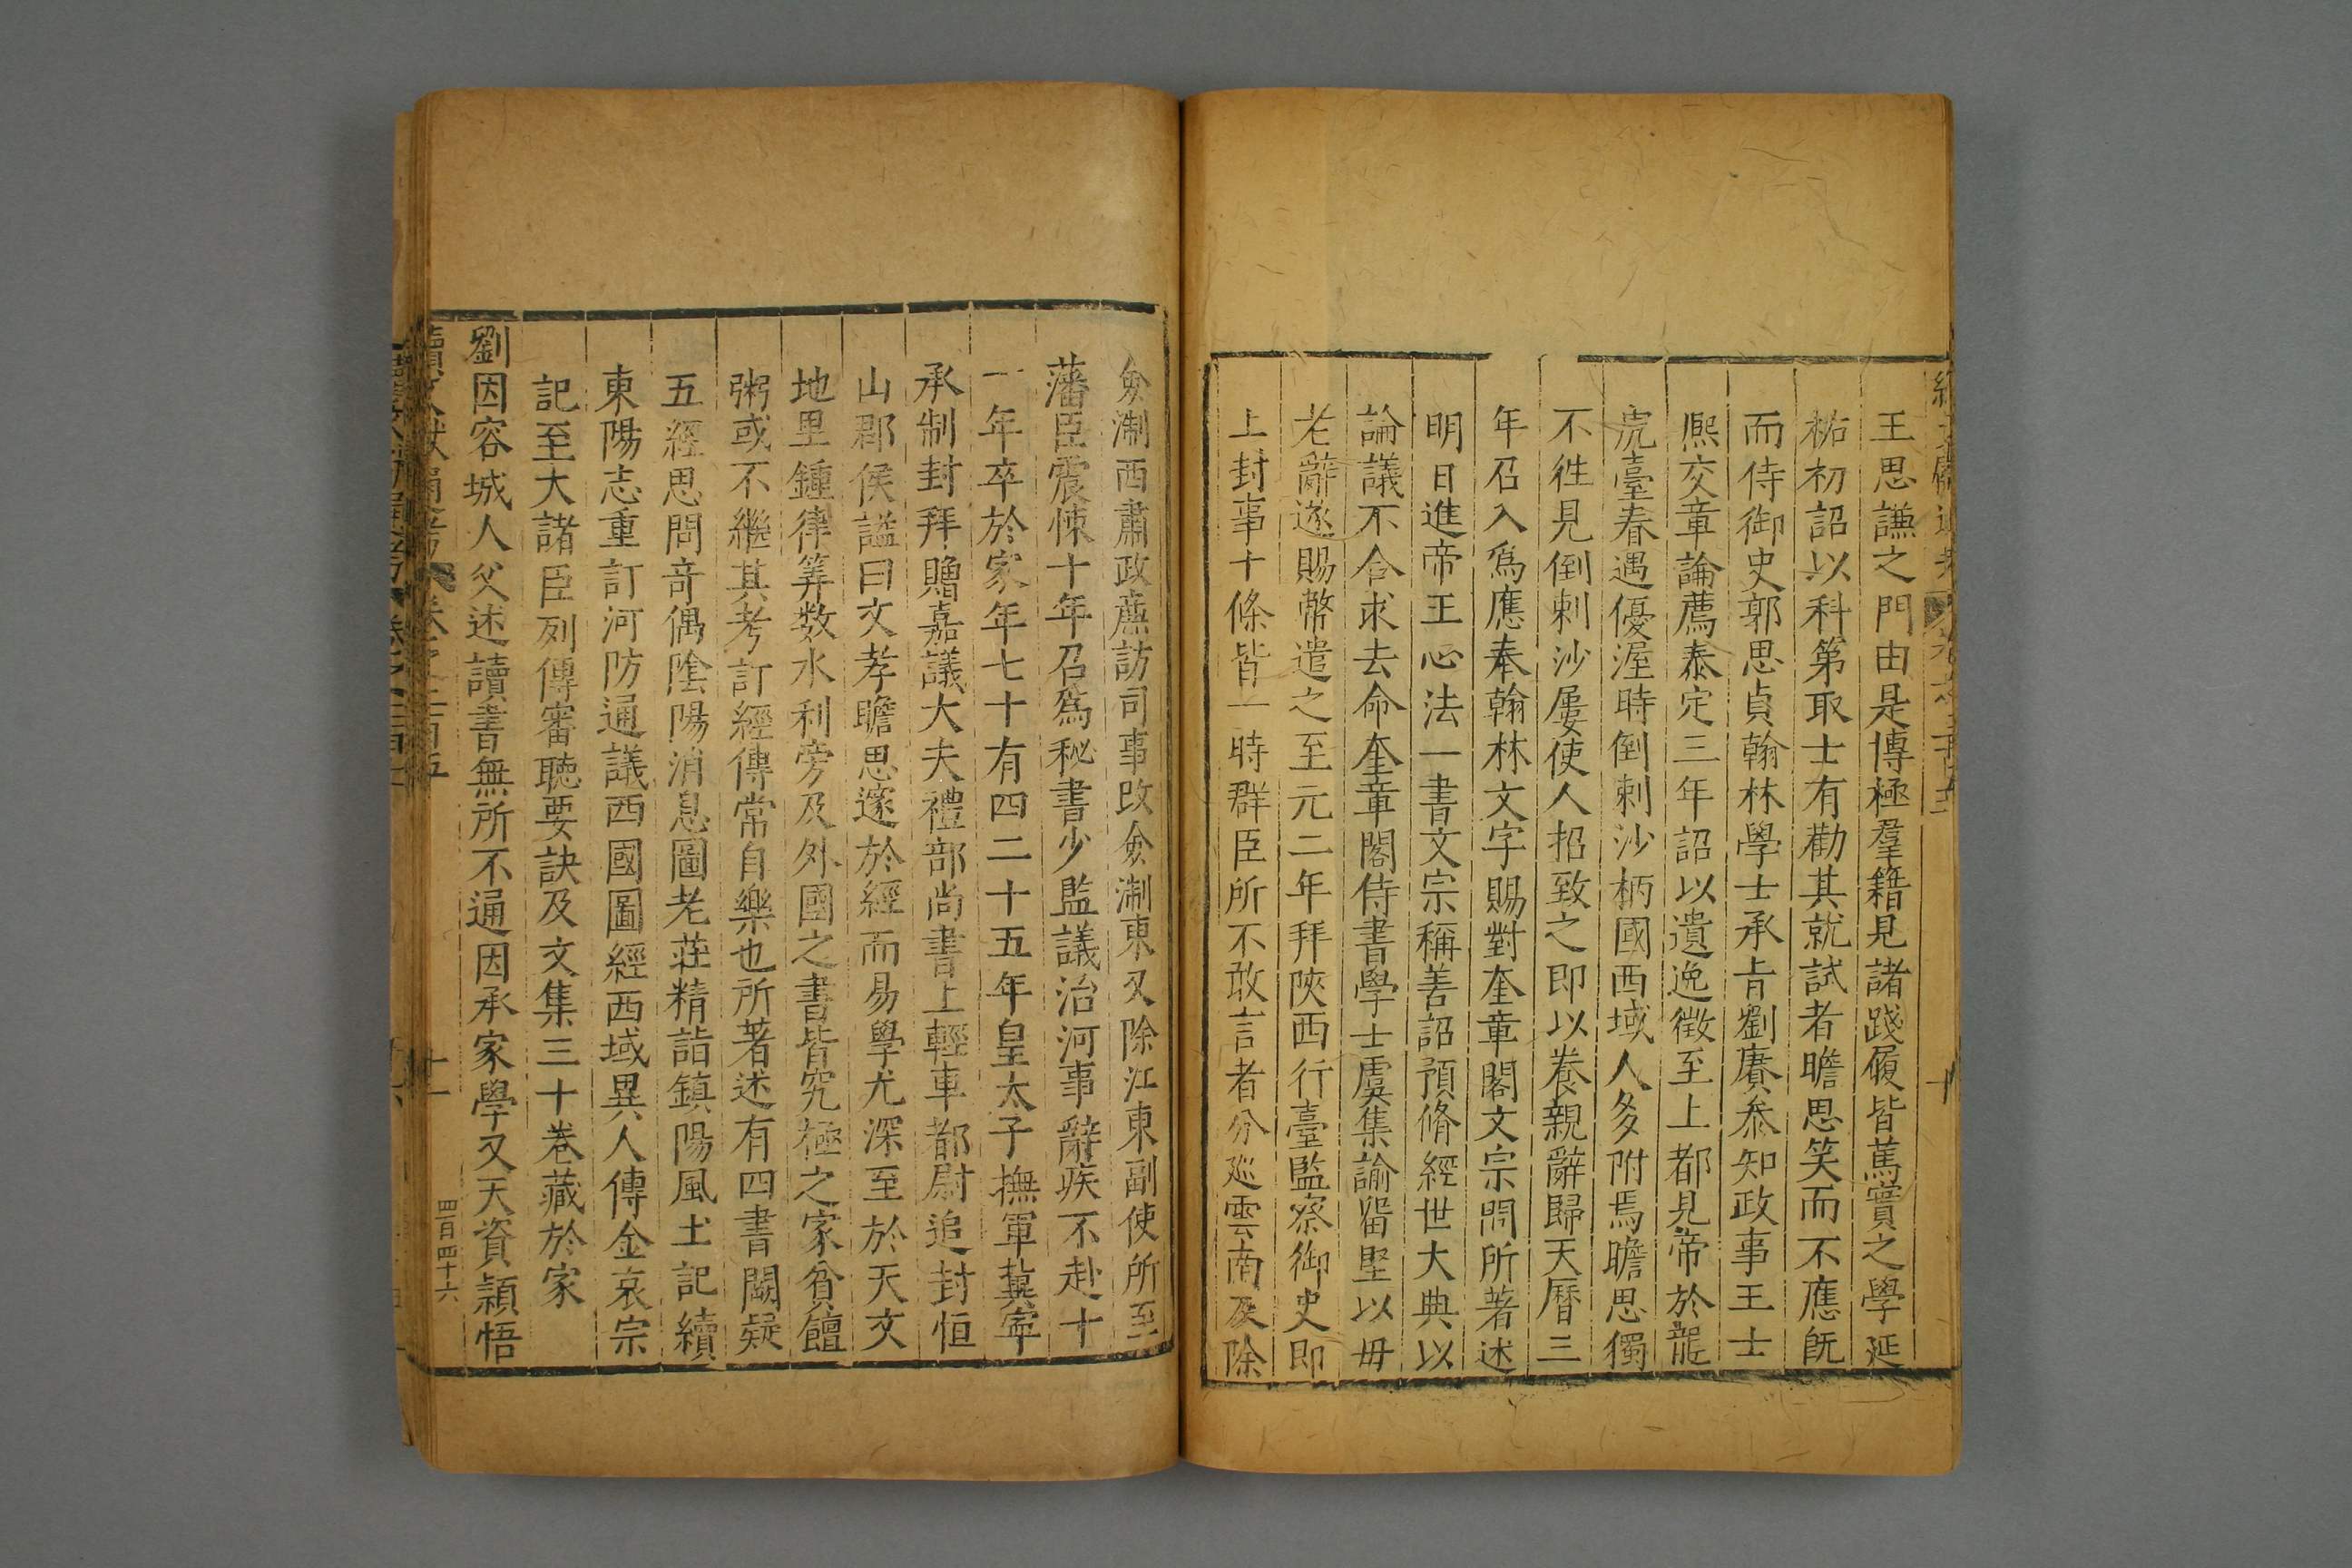 王思謙之門由是博極羣籍見諸踐履皆篤實之學延
祐初詔以科第取士有勸其就試者瞻思笑而不應既
而侍御史郭思貞翰林學士承㫖劉賡叅知政事王士
熈交章論薦泰定三年詔以遺逸徵至上都見帝於龍
虎臺春遇優渥時倒剌沙柄國西域人多附焉瞻思獨
不徃見倒剌沙屢使人招致之即以養親辭歸天曆三
年召入爲應奉翰林文字賜對奎章閣文宗問所著述
明日進帝王心法一書文宗稱善詔預脩經世大典以
論議不合求去命奎章閣侍書學士虞集諭留堅以毋
老辭遂賜幣遣之至元二年拜陝西行臺監察御史即
上封事十條皆一時群臣所不敢言者分廵雲南㞋除
僉淛西肅政亷訪司事改僉淛東又除江東副使所至
藩臣震悚十年召爲秘書少監議治河事辭疾不赴十
一年卒於家年七十有四二十五年皇太子撫軍冀寧
承制封拜贈嘉議大夫禮部尚書上輕車都尉追封恒
山郡侯謚曰文孝瞻思邃於經而易學尤深至於天文
地里鍾律筭数水利旁及外國之書皆究極之家貧饘
粥或不繼其考訂經傳常自樂也所著述有四書闕疑
五經思問竒偶陰陽消息圖老莊精詣鎮陽風土記續
東陽志重訂河防通議西國圖經西域異人傳金哀宗
記至大諸臣列傳審聽要訣及文集三十巻藏於家
劉因容城人父述讀書無所不通因承家學又天資頴悟
續文獻通考
十一
四百四十六